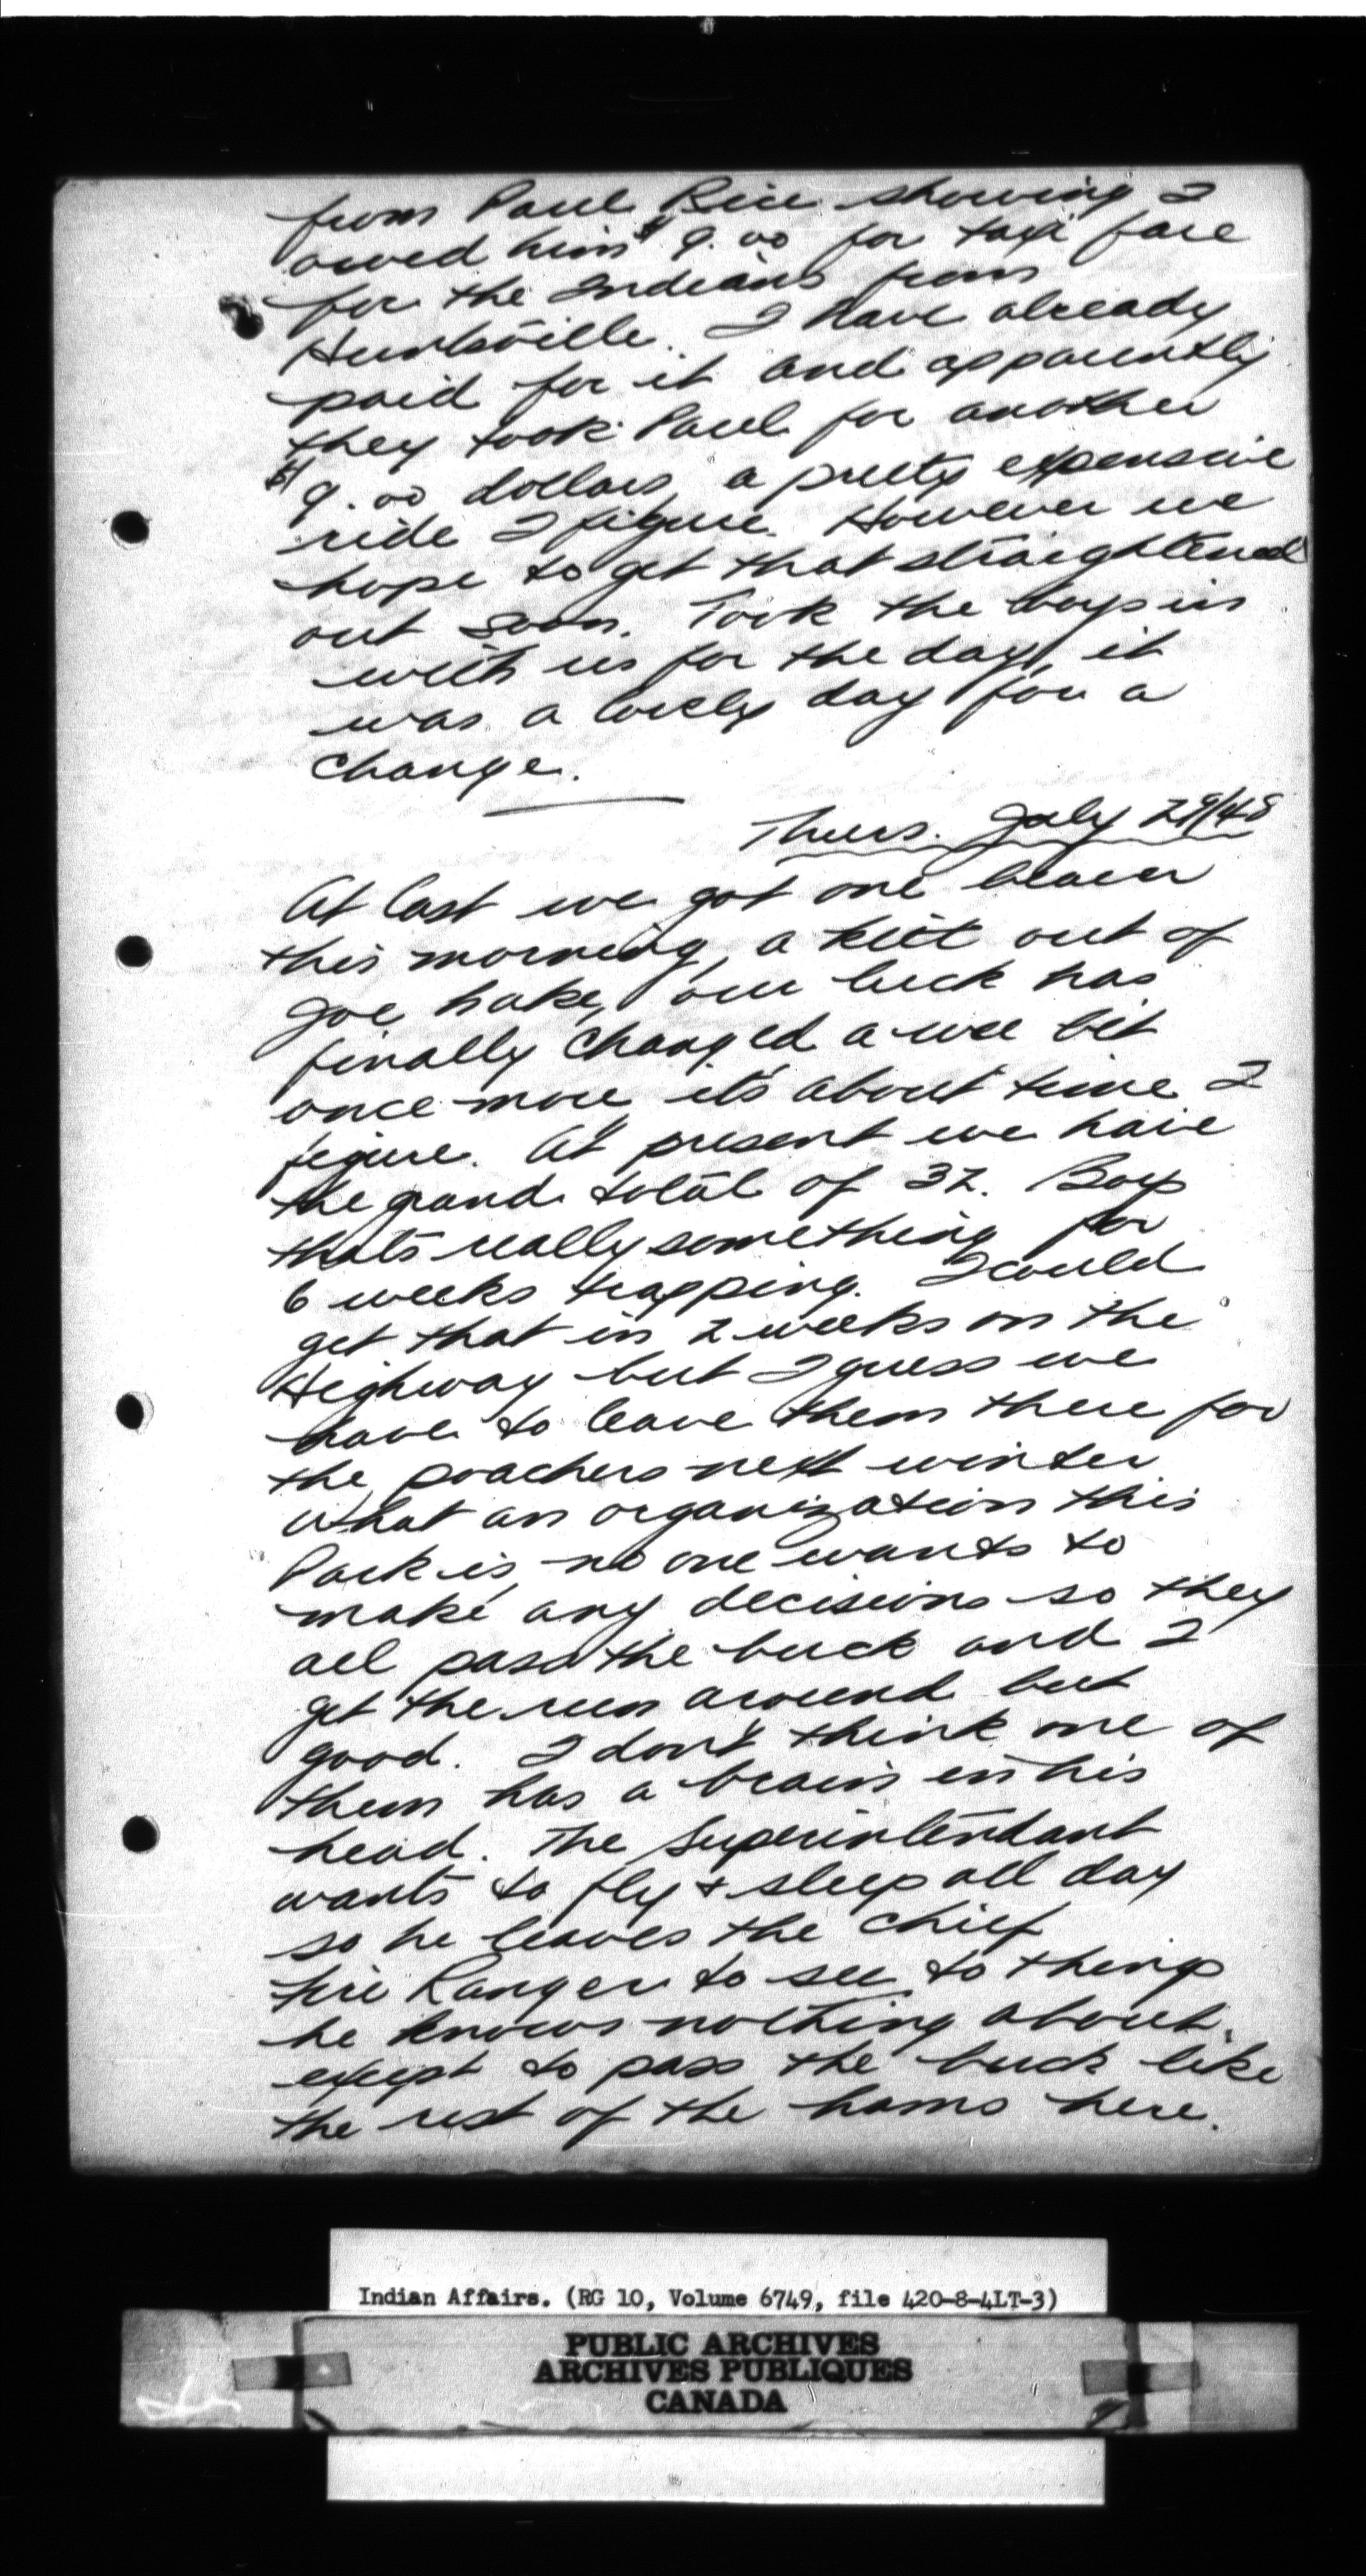 from Paul Rice showing I
owed him $9.00 for taxi fare
for the Indians from
Huntsville. I have already
paid for it and apparently
they took Paul for another
$9.00 dollars, a pretty expensive
ride I figure. However we
hope to get that straightened
out soon. Took the boys in
with us for the day, it
was a lovely day for a
change.
Thurs. July 29/48
At last we got one beaver
this morning, a kit out of
Joe Lake, our luck has
finally changed a wee bit
once more, it's about time I
figure. At present we have
the grand total of 32. Boy
that's really something for
6 weeks trapping. I could
get that in 2 weeks on the
Highway but I guess we
have to leave them there for
the poachers next winter
What an organization this
Park is, no one wants to
make any decisions so they
all pass the buck and I
get the run around but
good. I don't think one of
them has a brain in his
head. The Superintendant
wants to fly & sleep all day
so he leaves the Chief
Fire Ranger to see to things
he knows nothing about.
except to pass the buck like
the rest of the hams here.
Indian Affairs. (RG 10, Volume 6749, file 420-8-4LT-3)
PUBLIC ARCHIVES
ARCHIVES PUBLIQUES
CANADA